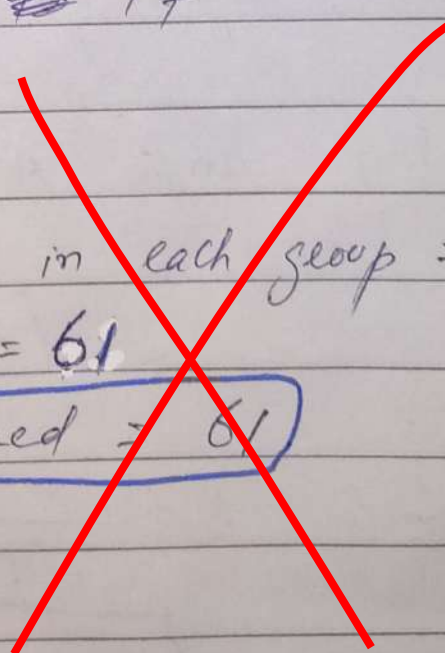 in each group
= 61
ed = 61